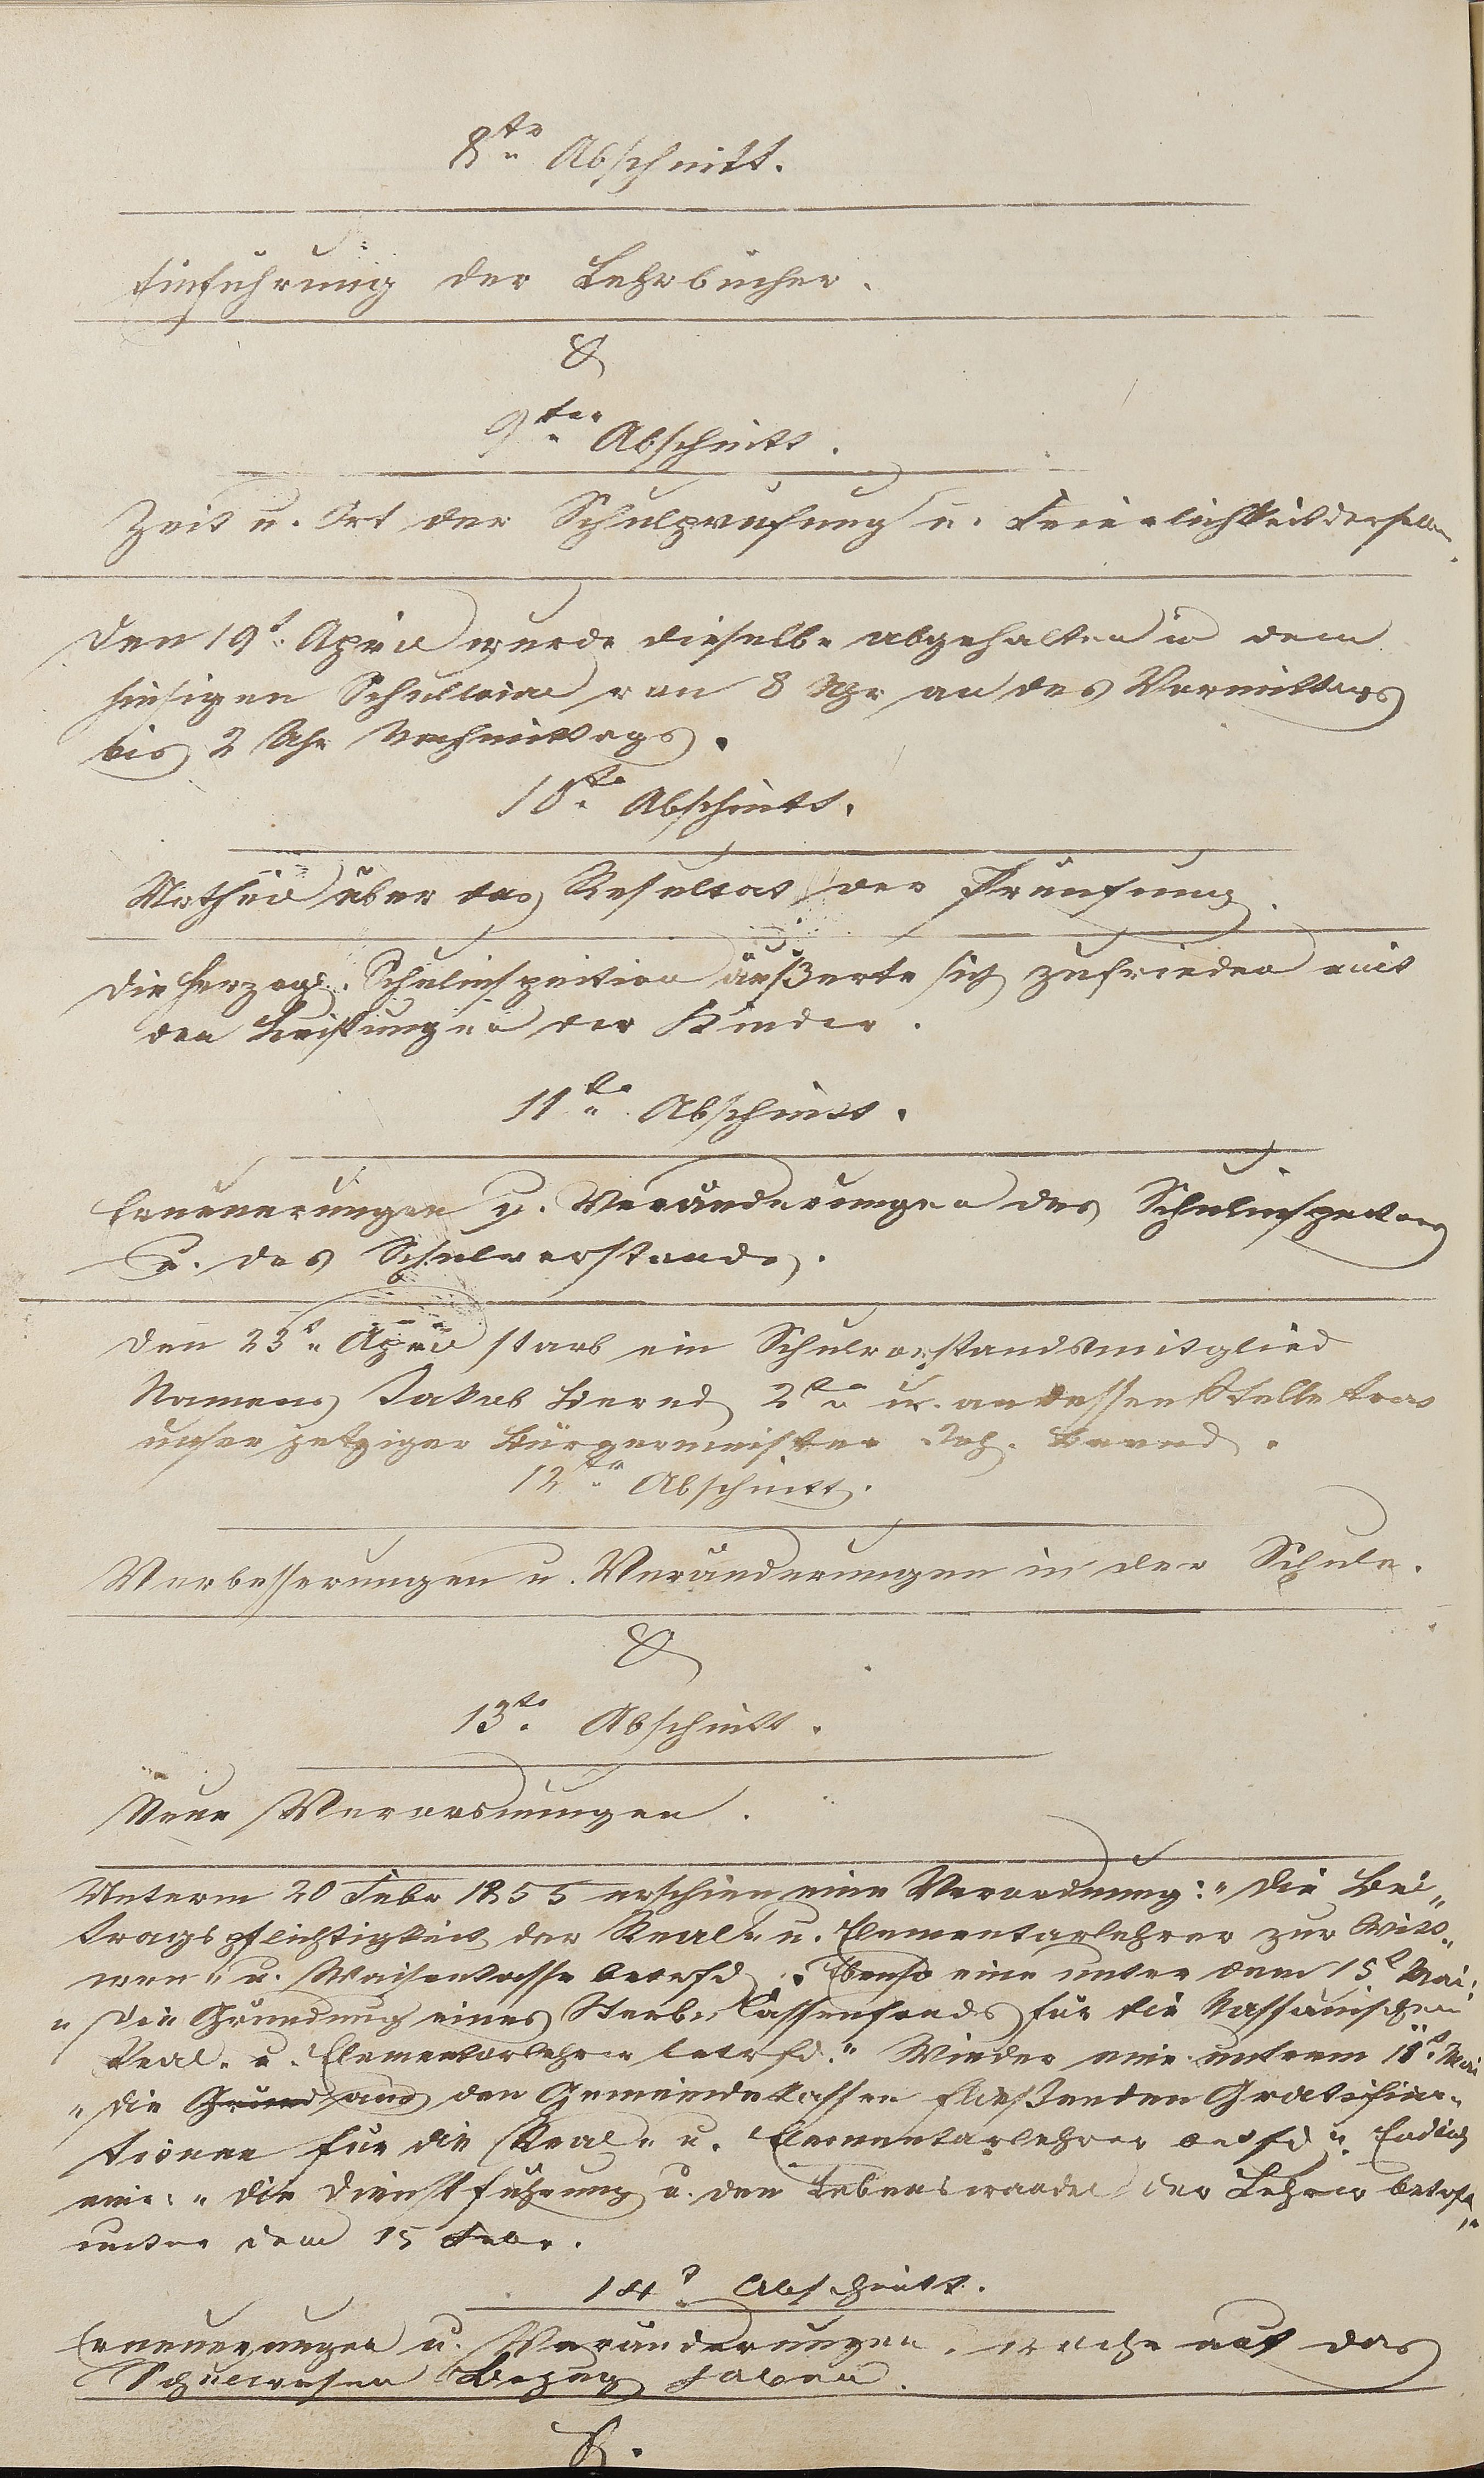 8te Abschnitt.
Einführung der Lehrbücher.
&
9ter Abschnitt.
Zeit u. Ort der Schulprüfung u. Feierlichkeit derselben.
Den 19t. April wurde dieselbe abgehalten in dem
hiesigen Schullocal von 8 Uhr an des Vormittags
bis 2 Uhr Nachmittags.
10te Abschnitt.
Urtheil über das Resultat der Prüfung.
Die Herzogl. Schulinspection äußerte sich zufrieden mit
den Leistungen der Kinder.
11te Abschnitt.
Erneuerungen u. Veränderungen des Schulinspectors
u. des Schulvorstands.
Den 23t. April starb ein Schulvorstandsmitglied
Namens Jakob Bernd 2te u. an dessen Stelle trat
unser jetziger Bürgermeister Joh. Bernd.
12te Abschnitt.
Verbesserungen u. Veränderungen in der Schule.
&
13te Abschnitt.
Neue Verordnungen.
Unterm 20 Febr 1855 erschien eine Verordnung: "Die Bei"
tragspflichtigkeit der Real- u. Elementarlehrer zur Witt"
wen- u. Waisenkasse betrfd". Ebenso eine unter dem 15t Mai:
"Die Gründung eines Sterb-Cassenfonds für die Nassauischen
Real- u. Elementarlehrer betrfd." Wieder eine unterm 11t Mai
"Die Grund aus den Gemeindekassen fließenden Gratifica-
tionen für die Real- u. Elementarlehrer betrfd". Endlich
eine: "Die Dienstführung u. den Lebenswandel der Lehrer betrfd"
unter dem 15 Febr.
14t. Abschnitt.
Erneuerungen u. Veränderungen, welche auf das
Schulwesen Bezug haben.
&.